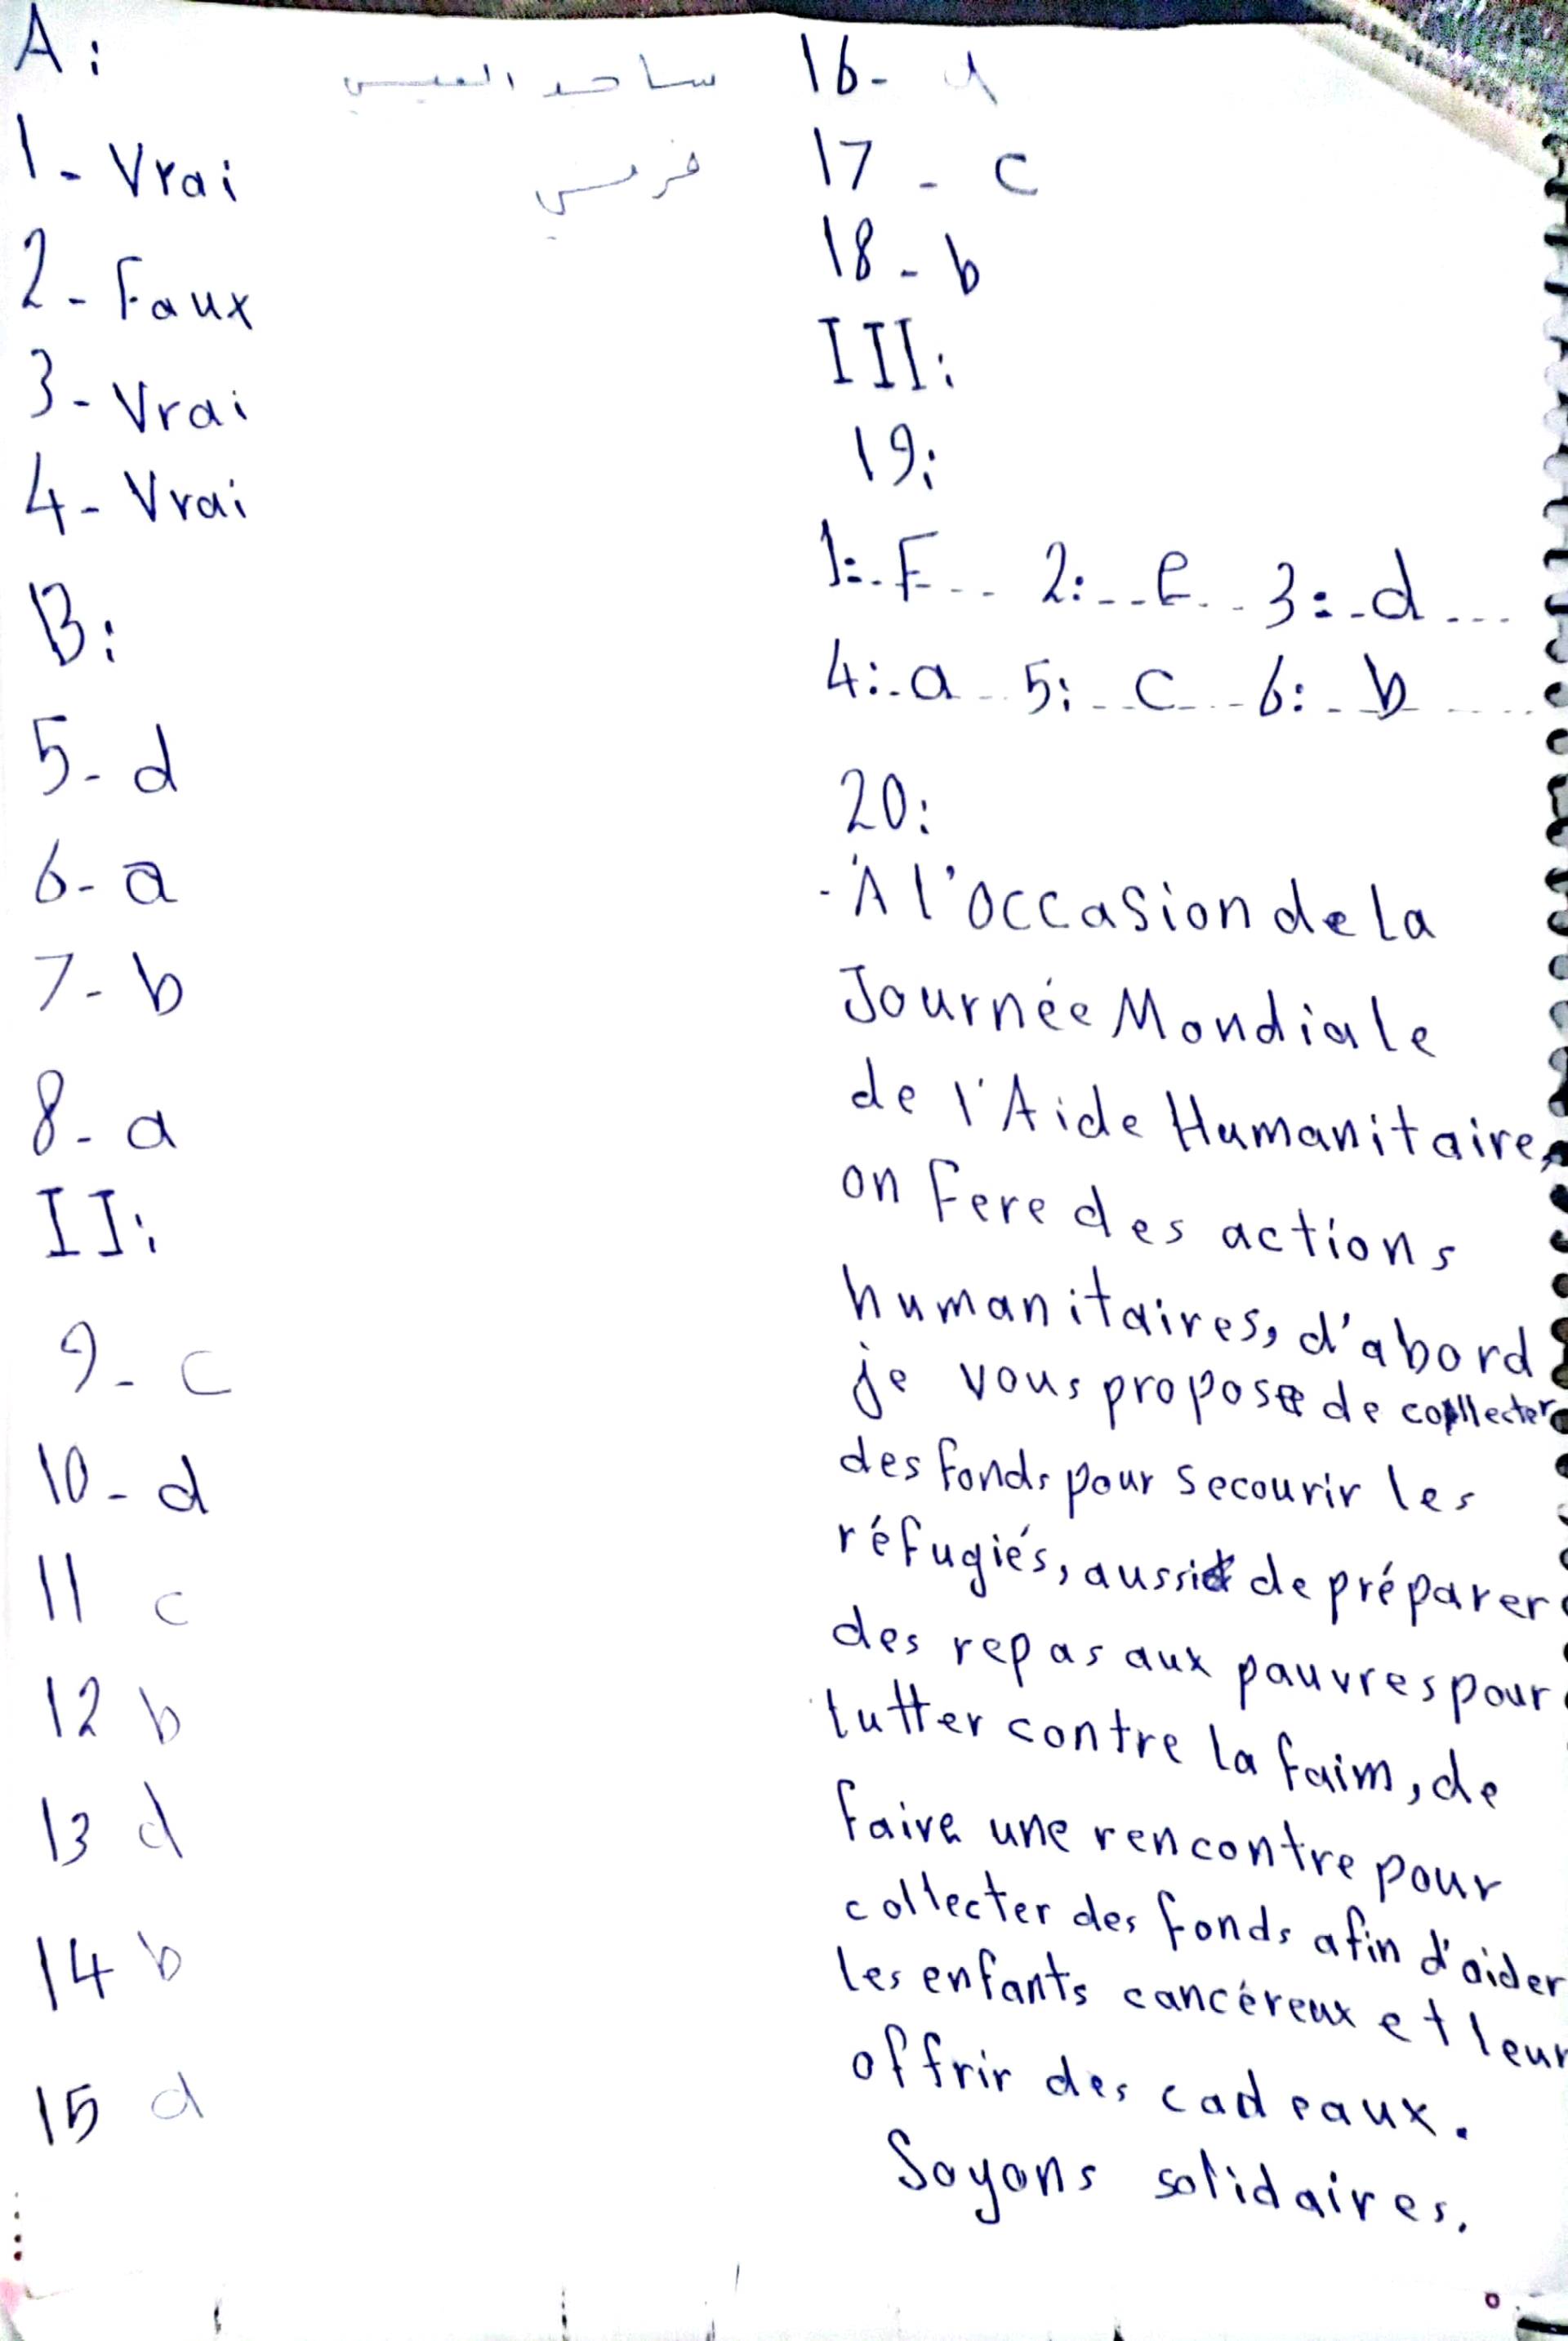 A:
1- Vrai
2- Faux
3- Vrai
4- Vrai
B:
5- d
6- a
7- b
8- a
II:
9- c
10- d
11 c
12 b
13 d
14 b
15 d
فرنسي
16- d
17- c
18- b
III:
19:
1: F 2: e 3: d
4: a 5: c 6: b
20:
- À l'occasion de la
Journée Mondiale
de l'Aide Humanitaire,
on fere des actions
humanitaires, d'abord
je vous propose de collecter
des fonds pour secourir les
réfugiés, aussi de préparer
des repas aux pauvres pour
lutter contre la faim, de
faire une rencontre pour
collecter des fonds afin d'aider
les enfants cancéreux et leur
offrir des cadeaux.
Soyons solidaires.